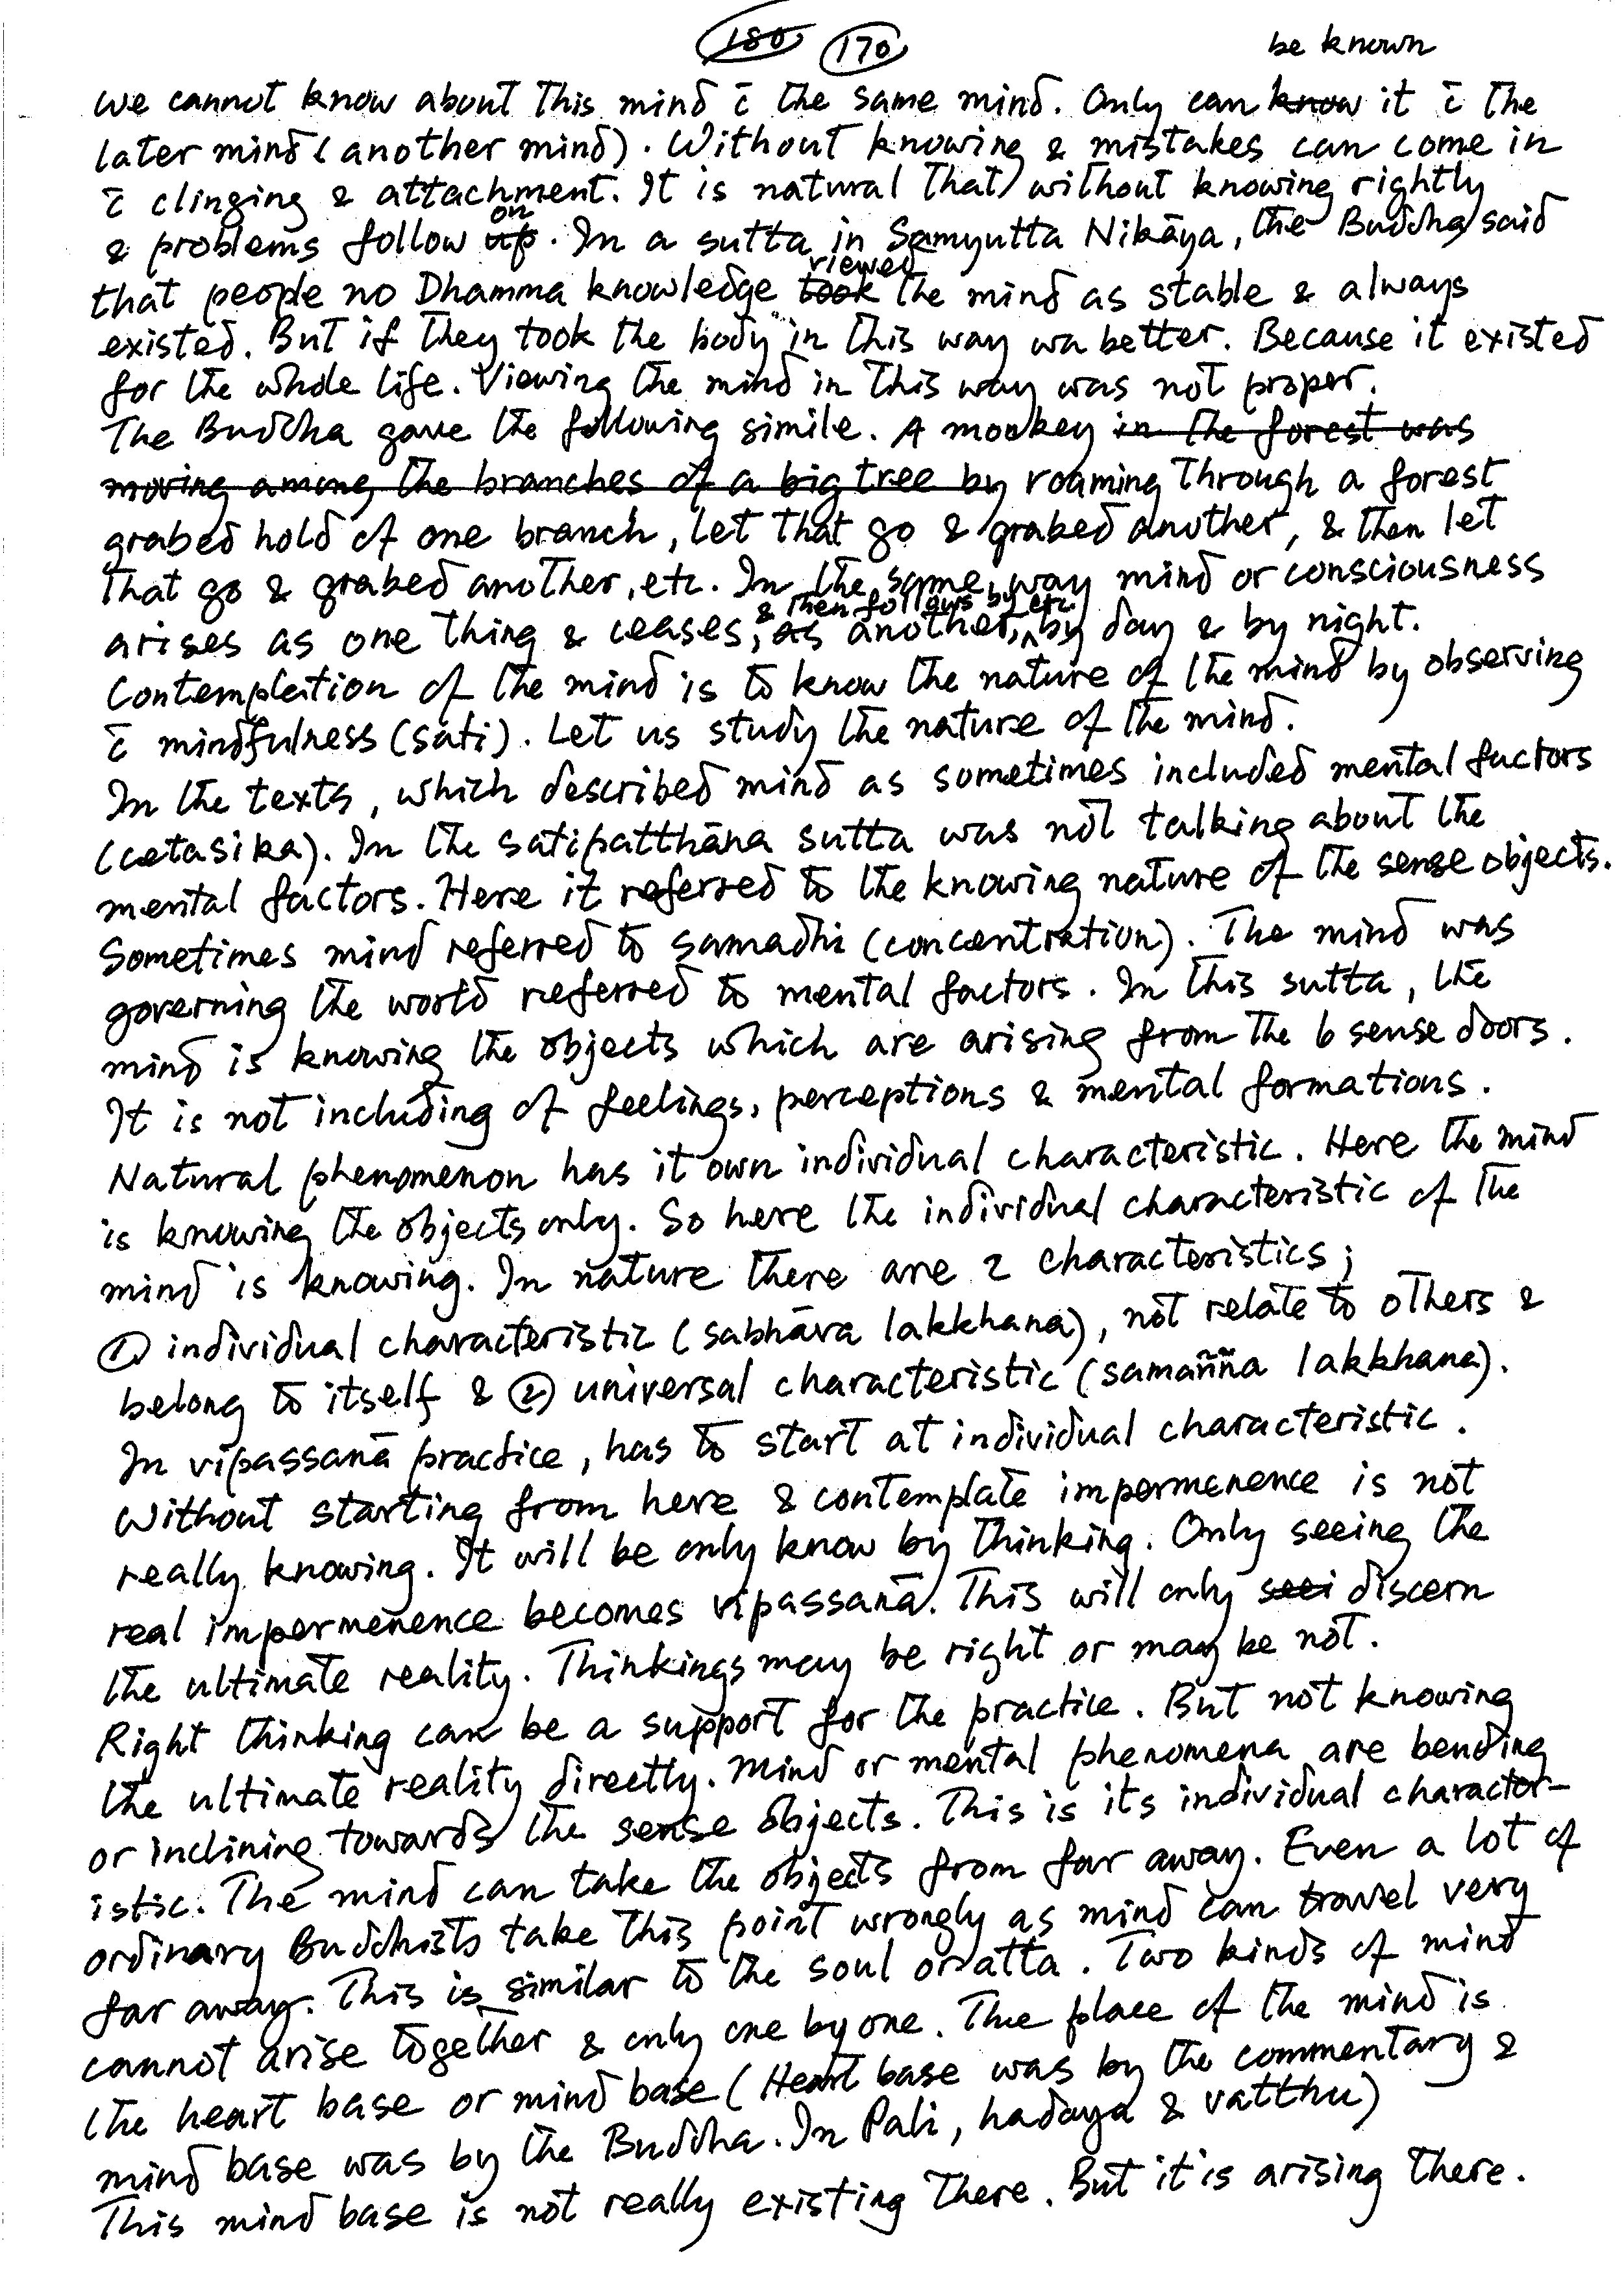 180 170
be known
we cannot know about this mind c̄ the same mind. Only can know it c̄ the
later mind (another mind). Without knowing & mistakes can come in
c̄ clinging & attachment. It is natural that, without knowing rightly
on
& problems follow up. In a sutta in Samyutta Nikāya, the Buddha said
viewed
that people no Dhamma knowledge took the mind as stable & always
existed. But if they took the body in this way wa better. Because it existed
for the whole life. Viewing the mind in this way was not proper.
The Buddha gave the following simile. A monkey in the forest was
moving among the branches of a big tree by roaming through a forest
grabed hold of one branch, let that go & grabed another, & then let
that go & grabed another, etc. In the same way mind or consciousness
& then follows by etc.
arises as one thing & ceases, as another, by day & by night.
Contempletion of the mind is to know the nature of the mind by observing
c̄ mindfulness (sati). Let us study the nature of the mind.
In the texts, which described mind as sometimes included mental factors
(cetasika). In the satipatthāna sutta was not talking about the
mental factors. Here it referred to the knowing nature of the sense objects.
Sometimes mind referred to samadhi (concentration). The mind was
governing the world referred to mental factors. In this sutta, the
mind is knowing the objects which are arising from the 6 sense doors.
It is not including of feelings, perceptions & mental formations.
Natural phenomenon has it own individual characteristic. Here the mind
is knowing the objects only. So here the individual characteristic of the
mind is knowing. In nature there are 2 characteristics;
① individual characteristic (sabhāva lakkhana), not relate to others &
belong to itself & ② universal characteristic (samañña lakkhana).
In vipassanā practice, has to start at individual characteristic.
Without starting from here & contemplate impermenence is not
really knowing. It will be only know by thinking. Only seeing the
real impermenence becomes vipassanā. This will only seei discern
the ultimate reality. Thinkings may be right or may be not.
Right thinking can be a support for the practice. But not knowing
the ultimate reality directly. Mind or mental phenomena are bending
or inclining towards the sense objects. This is its individual character-
istic. The mind can take the objects from far away. Even a lot of
ordinary Buddhists take this point wrongly as mind can travel very
far away. This is similar to the soul or atta. Two kinds of mind
cannot arise together & only one by one. The place of the mind is
the heart base or mind base (Heart base was by the commentary &
mind base was by the Buddha. In Pali, hadaya & vatthu)
This mind base is not really existing there. But it is arising there.